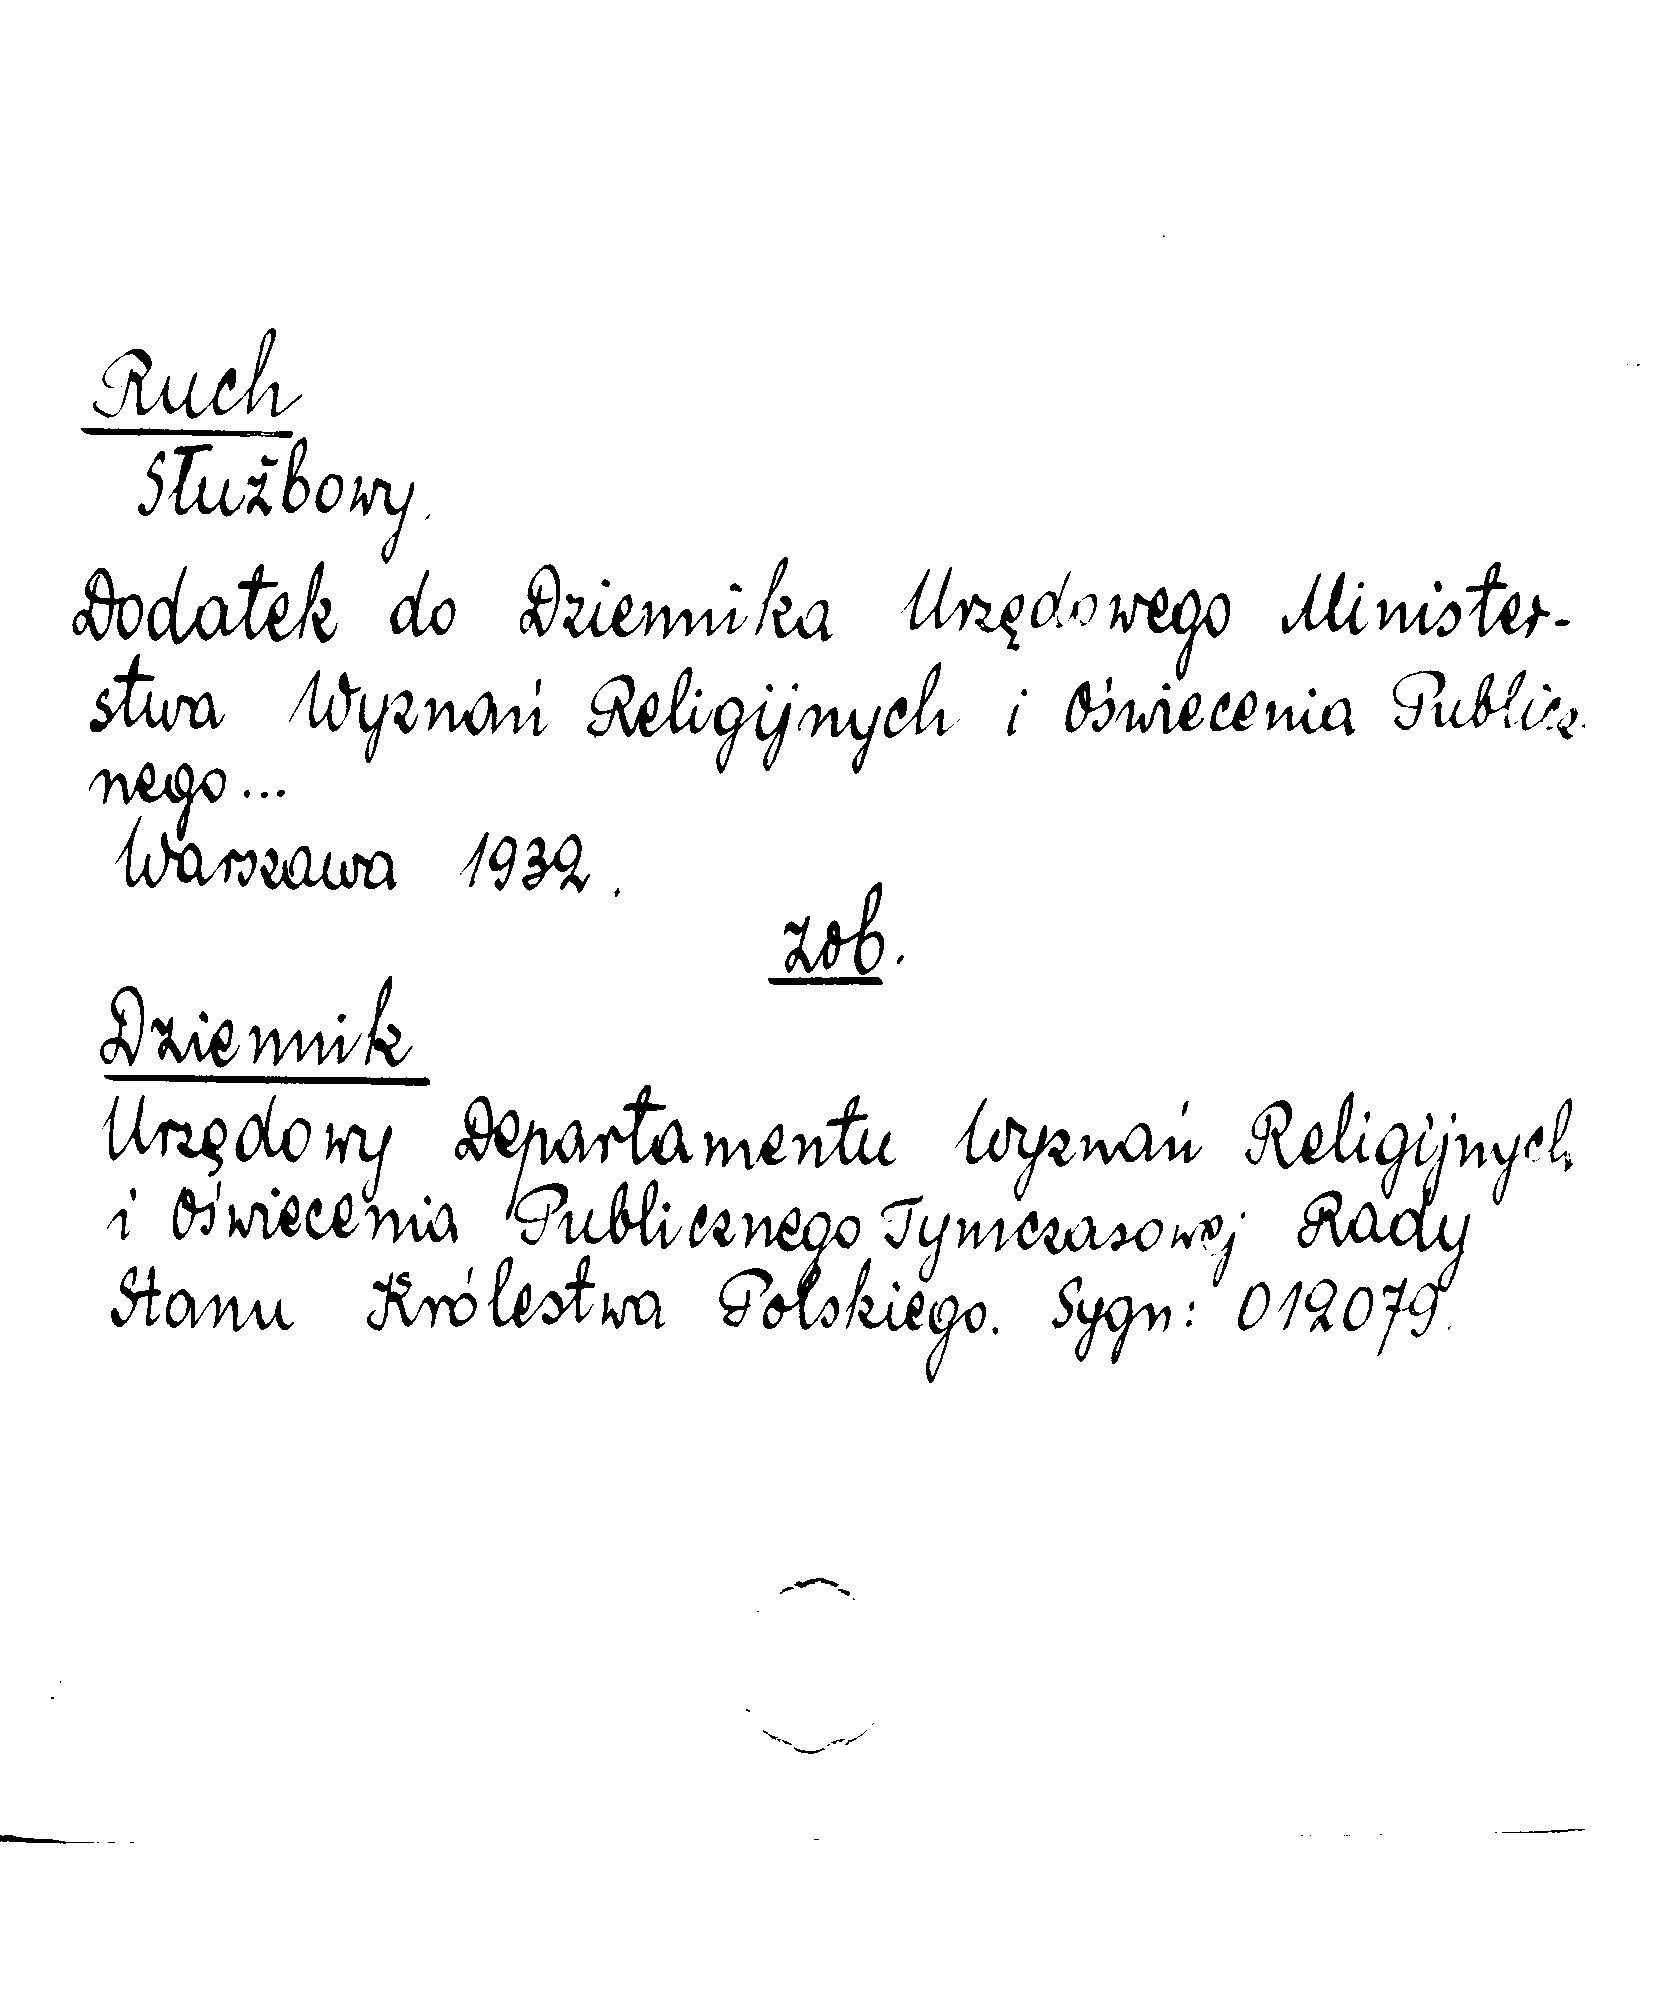 Ruch
Służbowy.
Dodatek do Dziennika Urzędowego Minister-
stwa Wyznań Religijnych i Oświecenia Publicz-
nego...
Warszawa 1932.
zob.
Dziennik
Urzędowy Departamentu Wyznań Religijnych
i Oświecenia Publicznego Tymczasowej Rady
Stanu Królestwa Polskiego. Sygn: 012079.